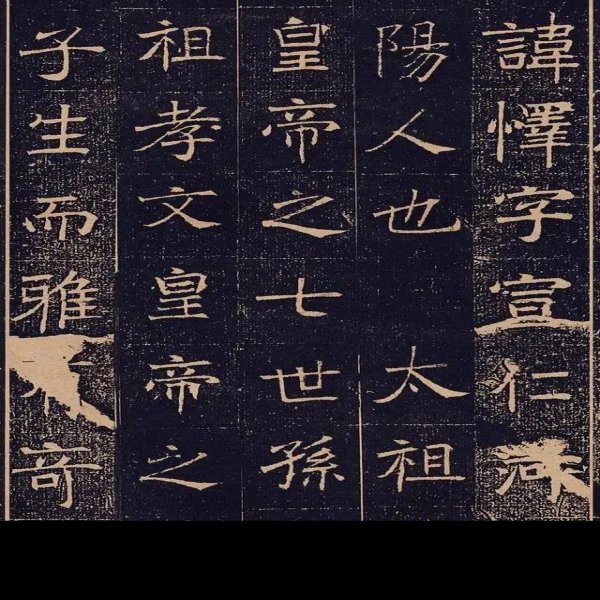 諱懌字宣仁
陽人也 太祖
皇帝之七世孫
祖孝文皇帝之
子生而雅奇